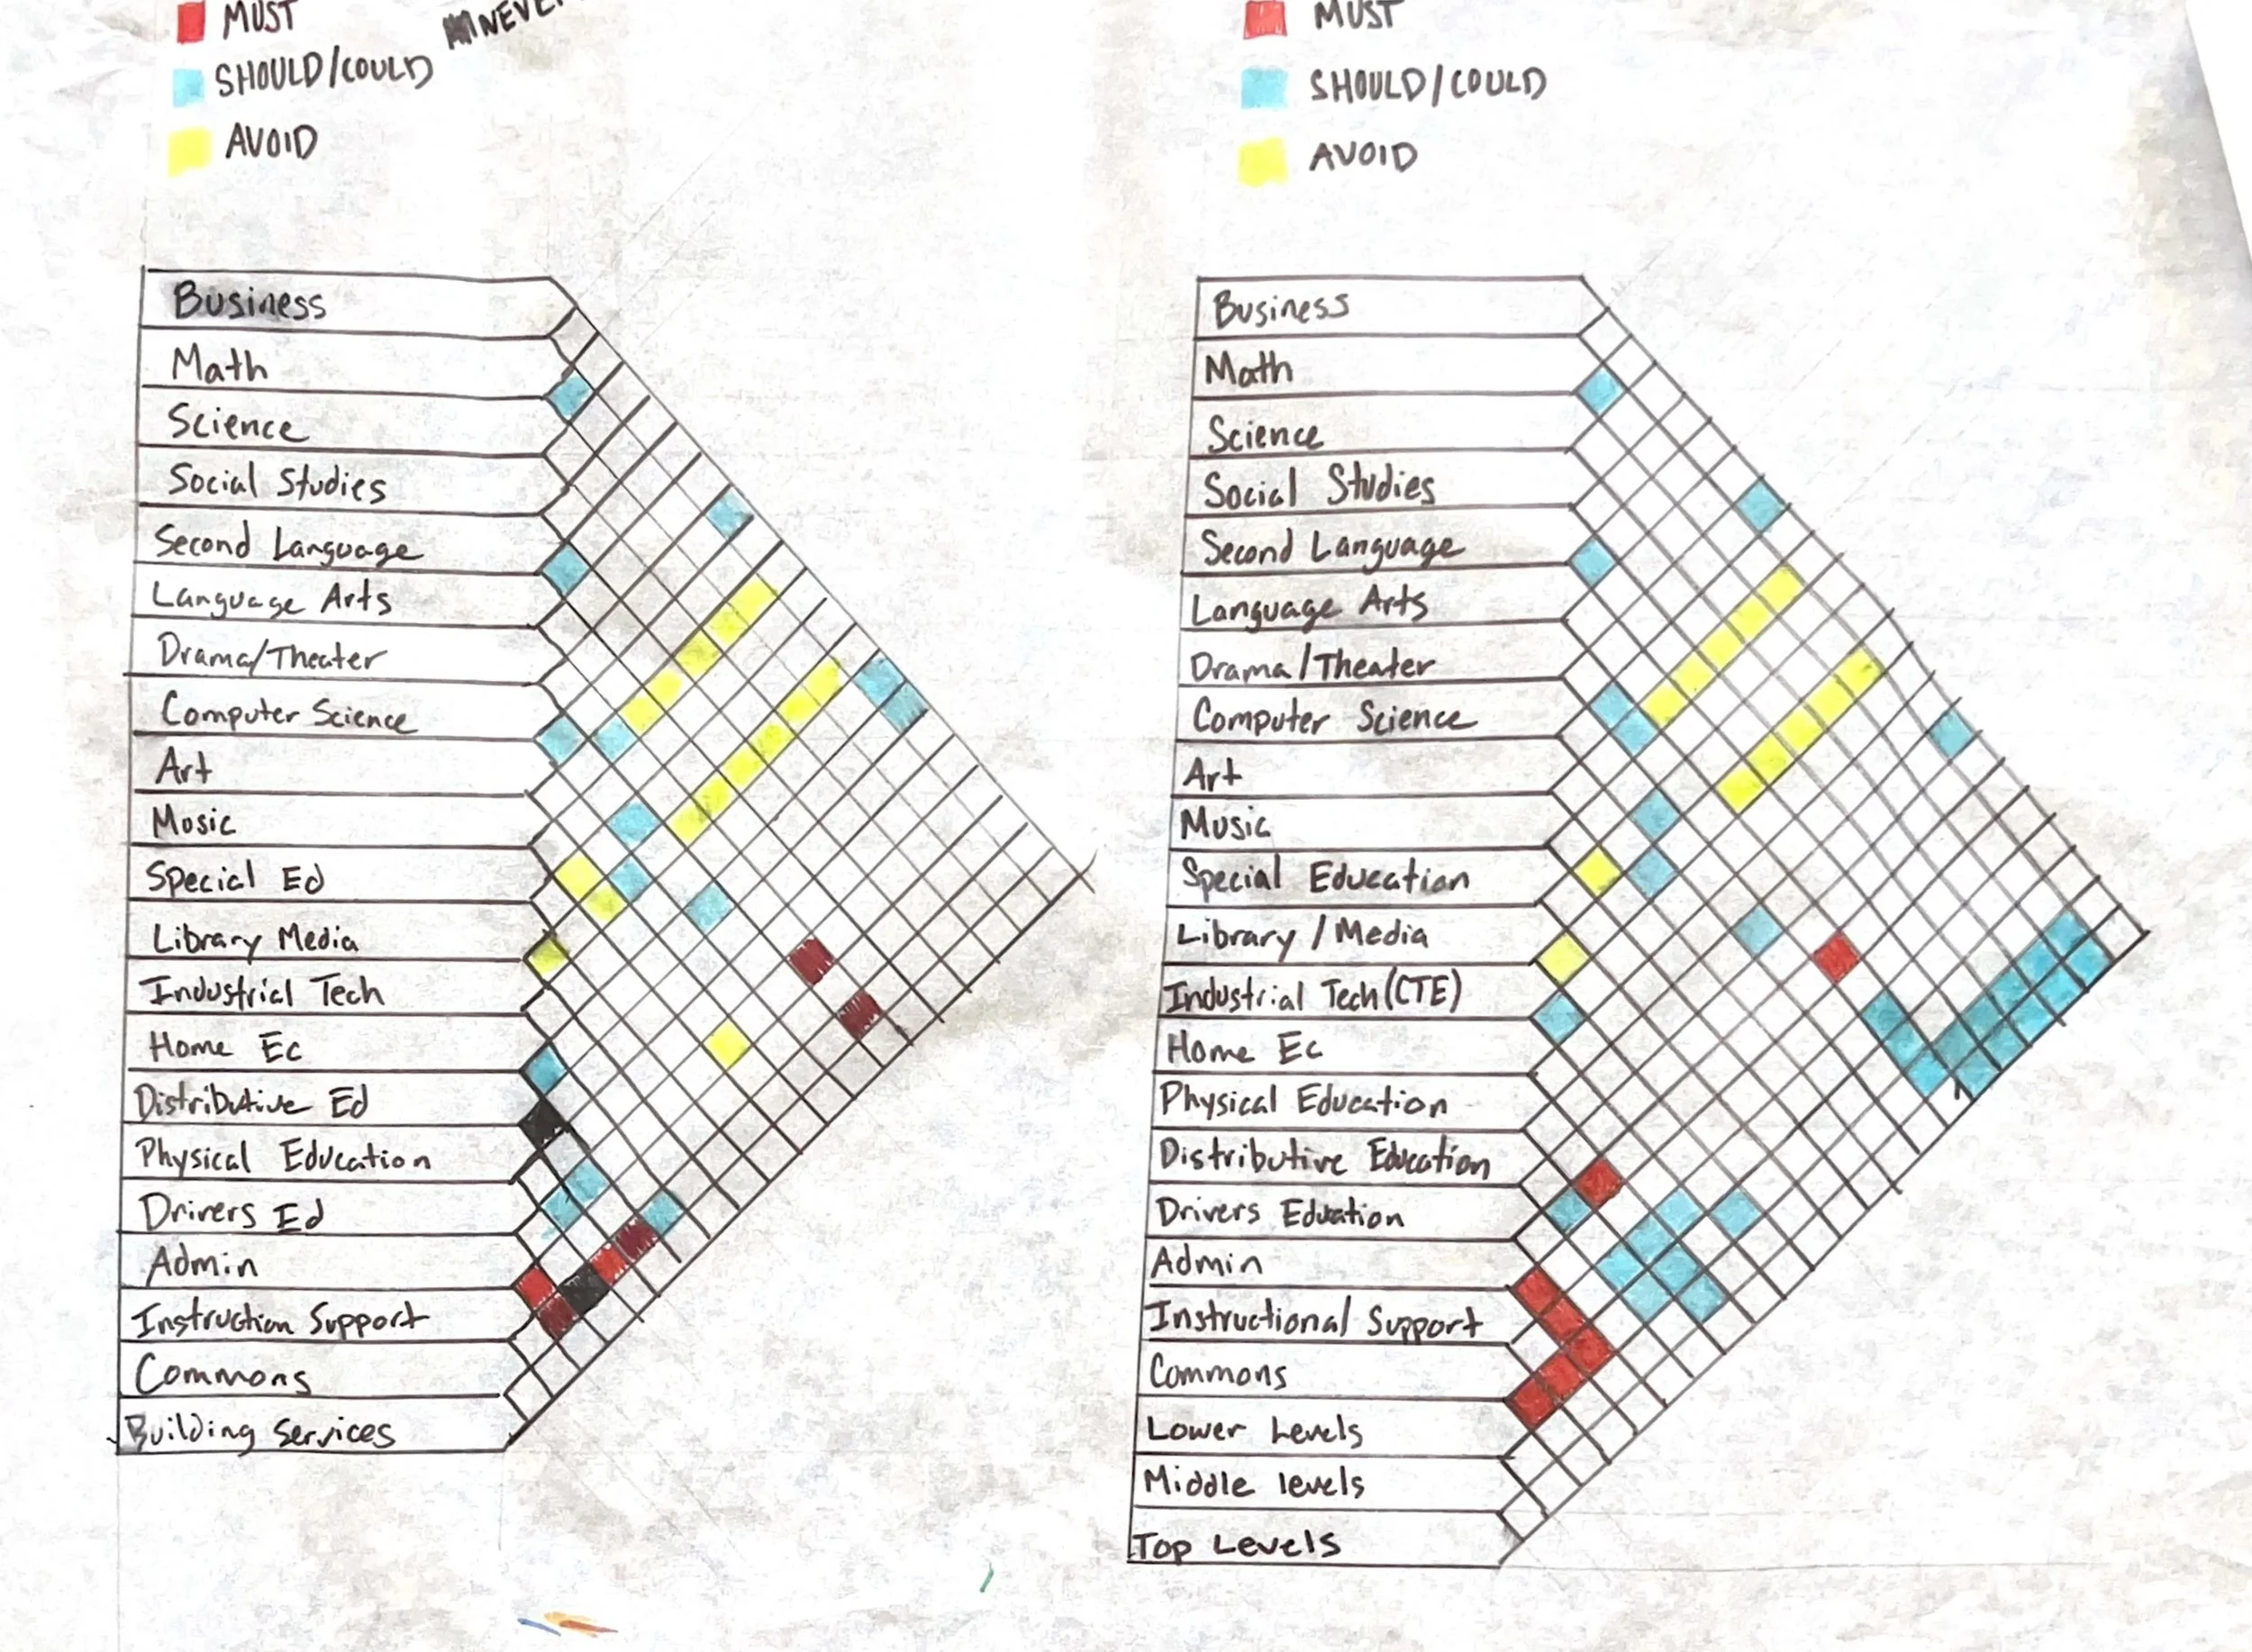 MUST
NEVER
SHOULD/COULD
AVOID
Business
Math
Science
Social Studies
Second Language
Language Arts
Drama/Theater
Computer Science
Art
Mosic
Special Ed
Library Media
Industrial Tech
Home Ec
Distributive Ed
Physical Education
Drivers Ed
Admin
Instruction Support
Commons
Building Services
MUST
SHOULD/COULD
AVOID
Business
Math
Science
Social Studies
Second Language
Language Arts
Drama/Theater
Computer Science
Art
Music
Special Education
Library/Media
Industrial Tech(CTE)
Home Ec
Physical Education
Distributive Education
Drivers Eduation
Admin
Instructional Support
Commons
Lower Levels
Middle levels
Top Levels